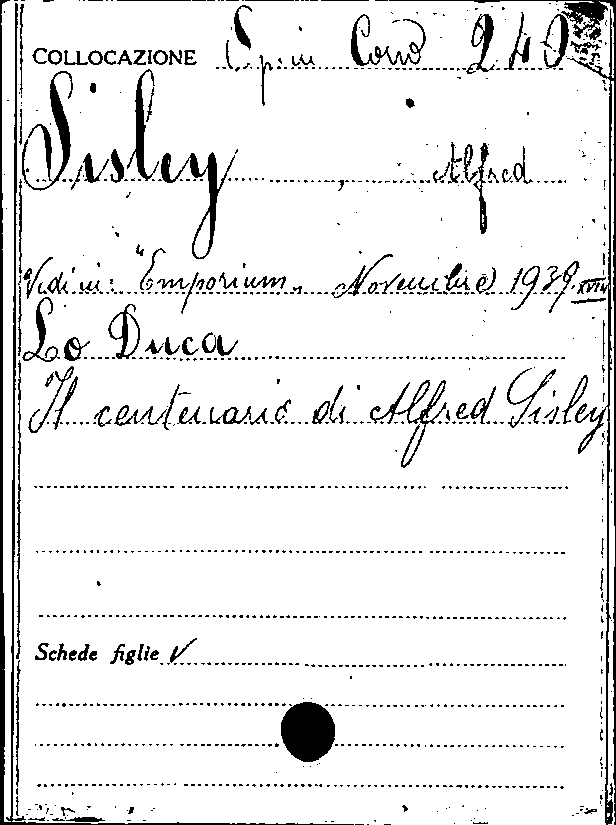 COLLOCAZIONE Sp. in Corso 240
Sisley, Alfred
Vedi in: "Emporium„ Novembre 1939 XVIII
Lo Duca
Il centenario di Alfred Sisley
Schede figlie V